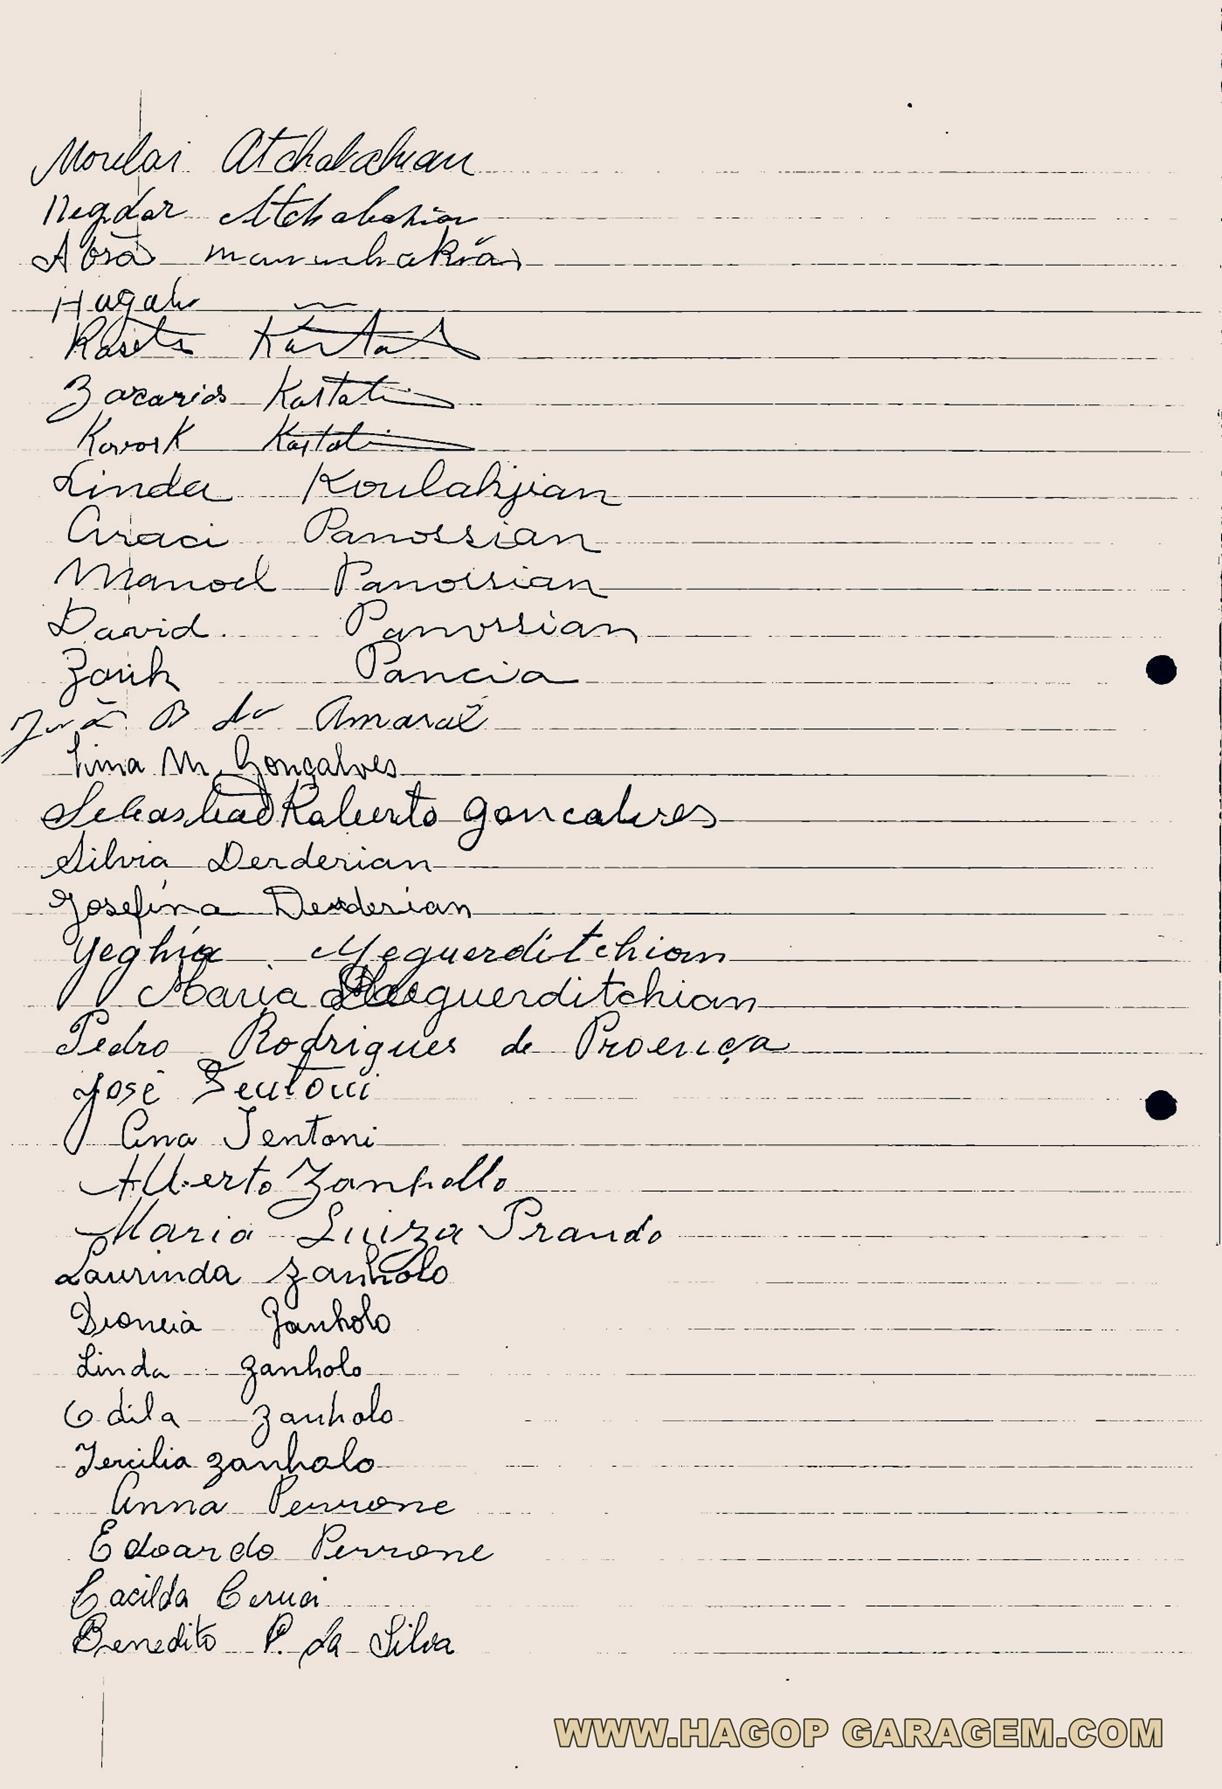 Atchabahian
Negdar Atchabahian
Abrã
Hagab
Kasita
Zacarias
Kevork
Linda Koulahjian
Araci Panossian
Manoel Panossian
David Panossian
Zarik Pancia
B do Amaral
Lima M. Gonçalves
Sebastião Roberto Goncalves
Silvia Derderian
Josefina Derderian
Yeghia Meguerditchian
Maria Meguerditchian
Pedro Rodrigues de Proença
José Tentoni
Ana Tentoni
Alberto Zanhollo
Maria Luiza Prando
Laurinda Zanholo
Dioneia Zanholo
Linda Zanholo
Odila Zanholo
Tercilia Zanholo
Anna Perrone
Edoardo Perrone
Cacilda Ceruci
Benedito P. da Silva
WWW.HAGOP GARAGEM.COM